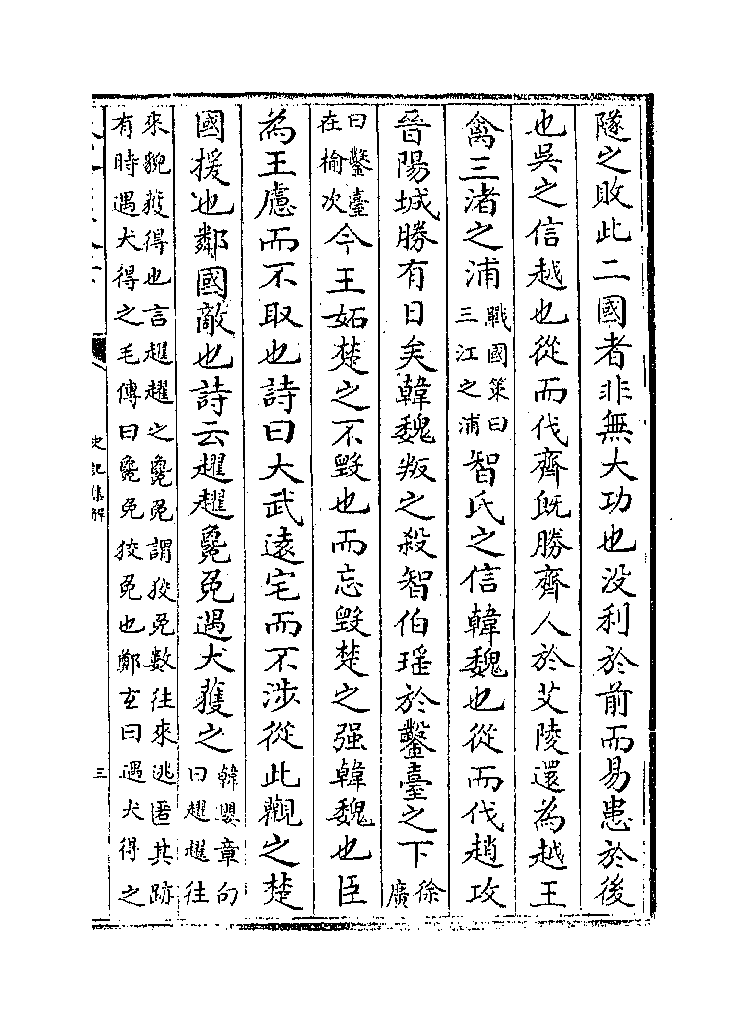 隧之敗此二國者非無大功也没利於前而易患於後
也吳之信越也從而伐齊既勝齊人於艾陵還為越王
禽三渚之浦戰國策曰三江之浦智氏之信韓魏也從而伐趙攻
晉陽城勝有日矣韓魏叛之殺智伯瑶於鑿臺之下徐廣
曰鑿臺在榆次今王妬楚之不毁也而忘毁楚之强韓魏也臣
為王慮而不取也詩曰大武逺宅而不涉從此觀之楚
國援也鄰國敵也詩云趯趯毚兔遇犬獲之韓嬰章句曰趯趯往
來貌獲得也言趯趯之毚兔謂狡兔數往來逃匿其跡有時遇犬得之毛傳曰毚兔狡兔也鄭玄曰遇犬得之
史記集解
三